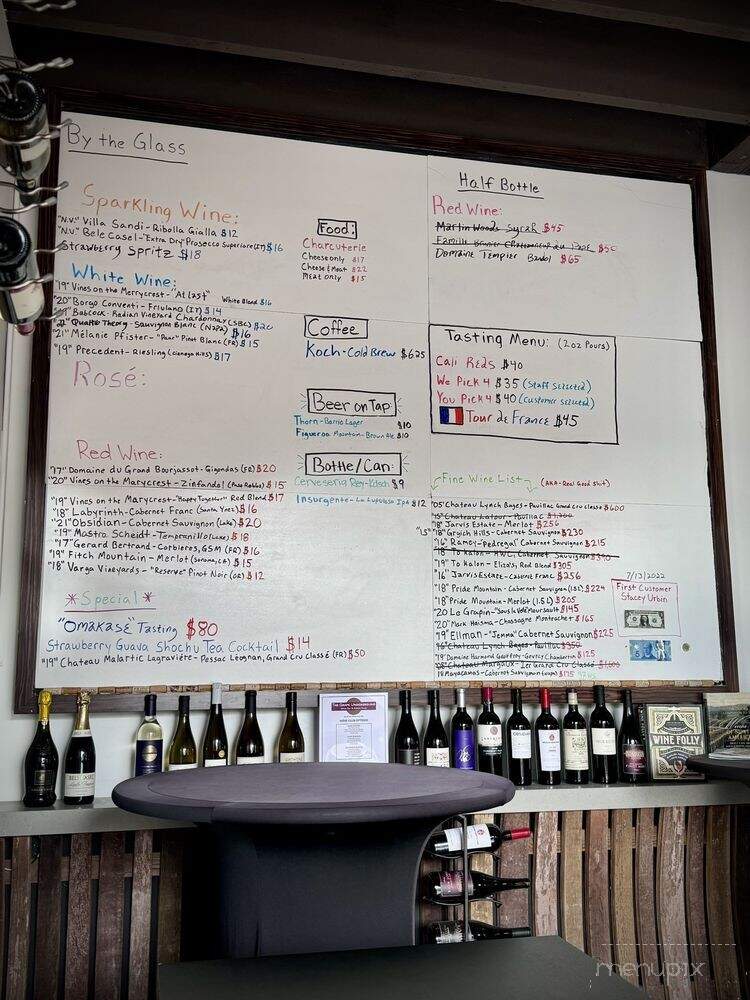 By the Glass
Sparkling Wine:
"N.V." Villa Sandi - Ribolla Gialla $12
"N.V" Bele Casel - "Extra Dry" Prosecco Superiore (IT) $16
Strawberry Spritz $18
White Wine:
"19" Vines on the Marycrest - "At Last" White Blend $16
"20" Borgo Conventi - Friulano (IT) $14
Babcock - Radian Vineyard Chardonnay (SBC) $20
Quatto Theory - Sauvignon Blanc (Napa) $16
"21" Mélanie Pfister - "Paar" Pinot Blanc (FR) $15
"19" Precedent - Riesling $17
Rosé:
Red Wine:
"17" Domaine du Grand Bourjassot - Gigondas (FR) $20
"20" Vines on the Marycrest - Zinfandel (Paso Robles) $15
"19" Vines on the Marycrest - "Happy Together" Red Blend $17
"18" Labyrinth - Cabernet Franc (Santa Ynez) $16
"21" Obsidian - Cabernet Sauvignon (Lake) $20
"19" Mastro Scheidt - Tempranillo (Lake) $18
"17" Gerard Bertrand - Corbieres, GSM (FR) $16
"19" Fitch Mountain - Merlot (Sonoma, CA) $15
"18" Varga Vineyards - "Reserve" Pinot Noir (OR) $12
*Special*
"Omakase" Tasting $80
Strawberry Guava Shochu Tea Cocktail $14
"19" Chateau Malartic Lagraviére - Pessac Léognan, Grand Cru Classé (FR) $50
Food:
Charcuterie
Cheese only $17
Cheese & Meat $22
Meat only $15
Coffee
Koch - Cold Brew $6.25
Beer on Tap
Thorn - Barrio Lager $10
Figueroa Mountain - Brown Ale $10
Bottle/Can:
Cerveseria Rey - Kolsch $9
Insurgente - La Lupulosa Ipa $12
Half Bottle
Red Wine:
Martin Woods Syrah $45
Famille Brunier Chateauneuf du Pape $50
Domaine Tempier Bandol $65
Tasting Menu: (2oz Pours)
Cali Reds $40
We Pick 4 $35 (Staff Selected)
You Pick 4 $40 (Customer Selected)
Tour de France $45
Fine Wine List (AKA - Real Good Shit)
"05" Chateau Lynch Bages - Pauillac Grand Cru Classe $600
"15" Chateau Latour - Pauillac $1,300
"18" Jarvis Estate - Merlot $256
"15" "18" Grgich Hills - Cabernet Sauvignon $230
"16" Ramey - Pedregal Cabernet Sauvignon $215
"18" To Kalon - H.W.C, Cabernet Sauvignon
"19" To Kalon - Eliza's, Red Blend $305
"16" Jarvis Estate - Cabernet Franc $256
"18" Pride Mountain - Cabernet Sauvignon (1.5L) $224
"18" Pride Mountain - Merlot (1.5 L) $205
"20 Le Grappin - "Sous la Velle" Meursault $145
"20" Mark Haisma - Chassagne Montrachet $165
"79 Ellman - "Jemma" Cabernet Sauvignon $225
"96" Chateau Lynch Bages - Pauillac $350
"19" Domaine Harmand Geoffroy - Gevrey Chambertin $125
"05" Chateau Margaux - 1er Grand Cru Classé
18 Mayacamas - Cabernet Sauvignon (Napa) $175
7/13/2022
First Customer
Stacey Urbin
The Grape Underground
WINE FOLLY
menupix